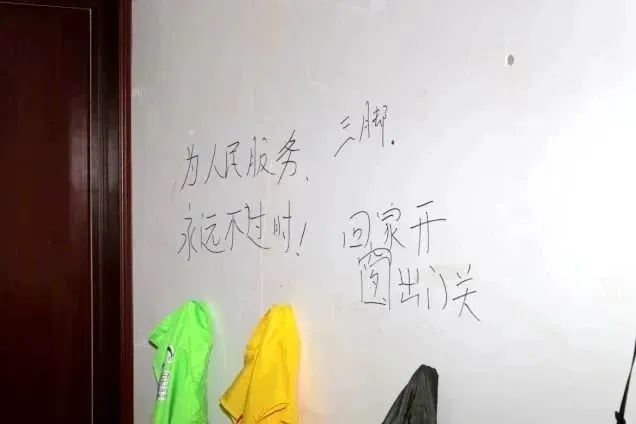 为人民服务、
永远不过时！
三脚.
回家开
窗出门关